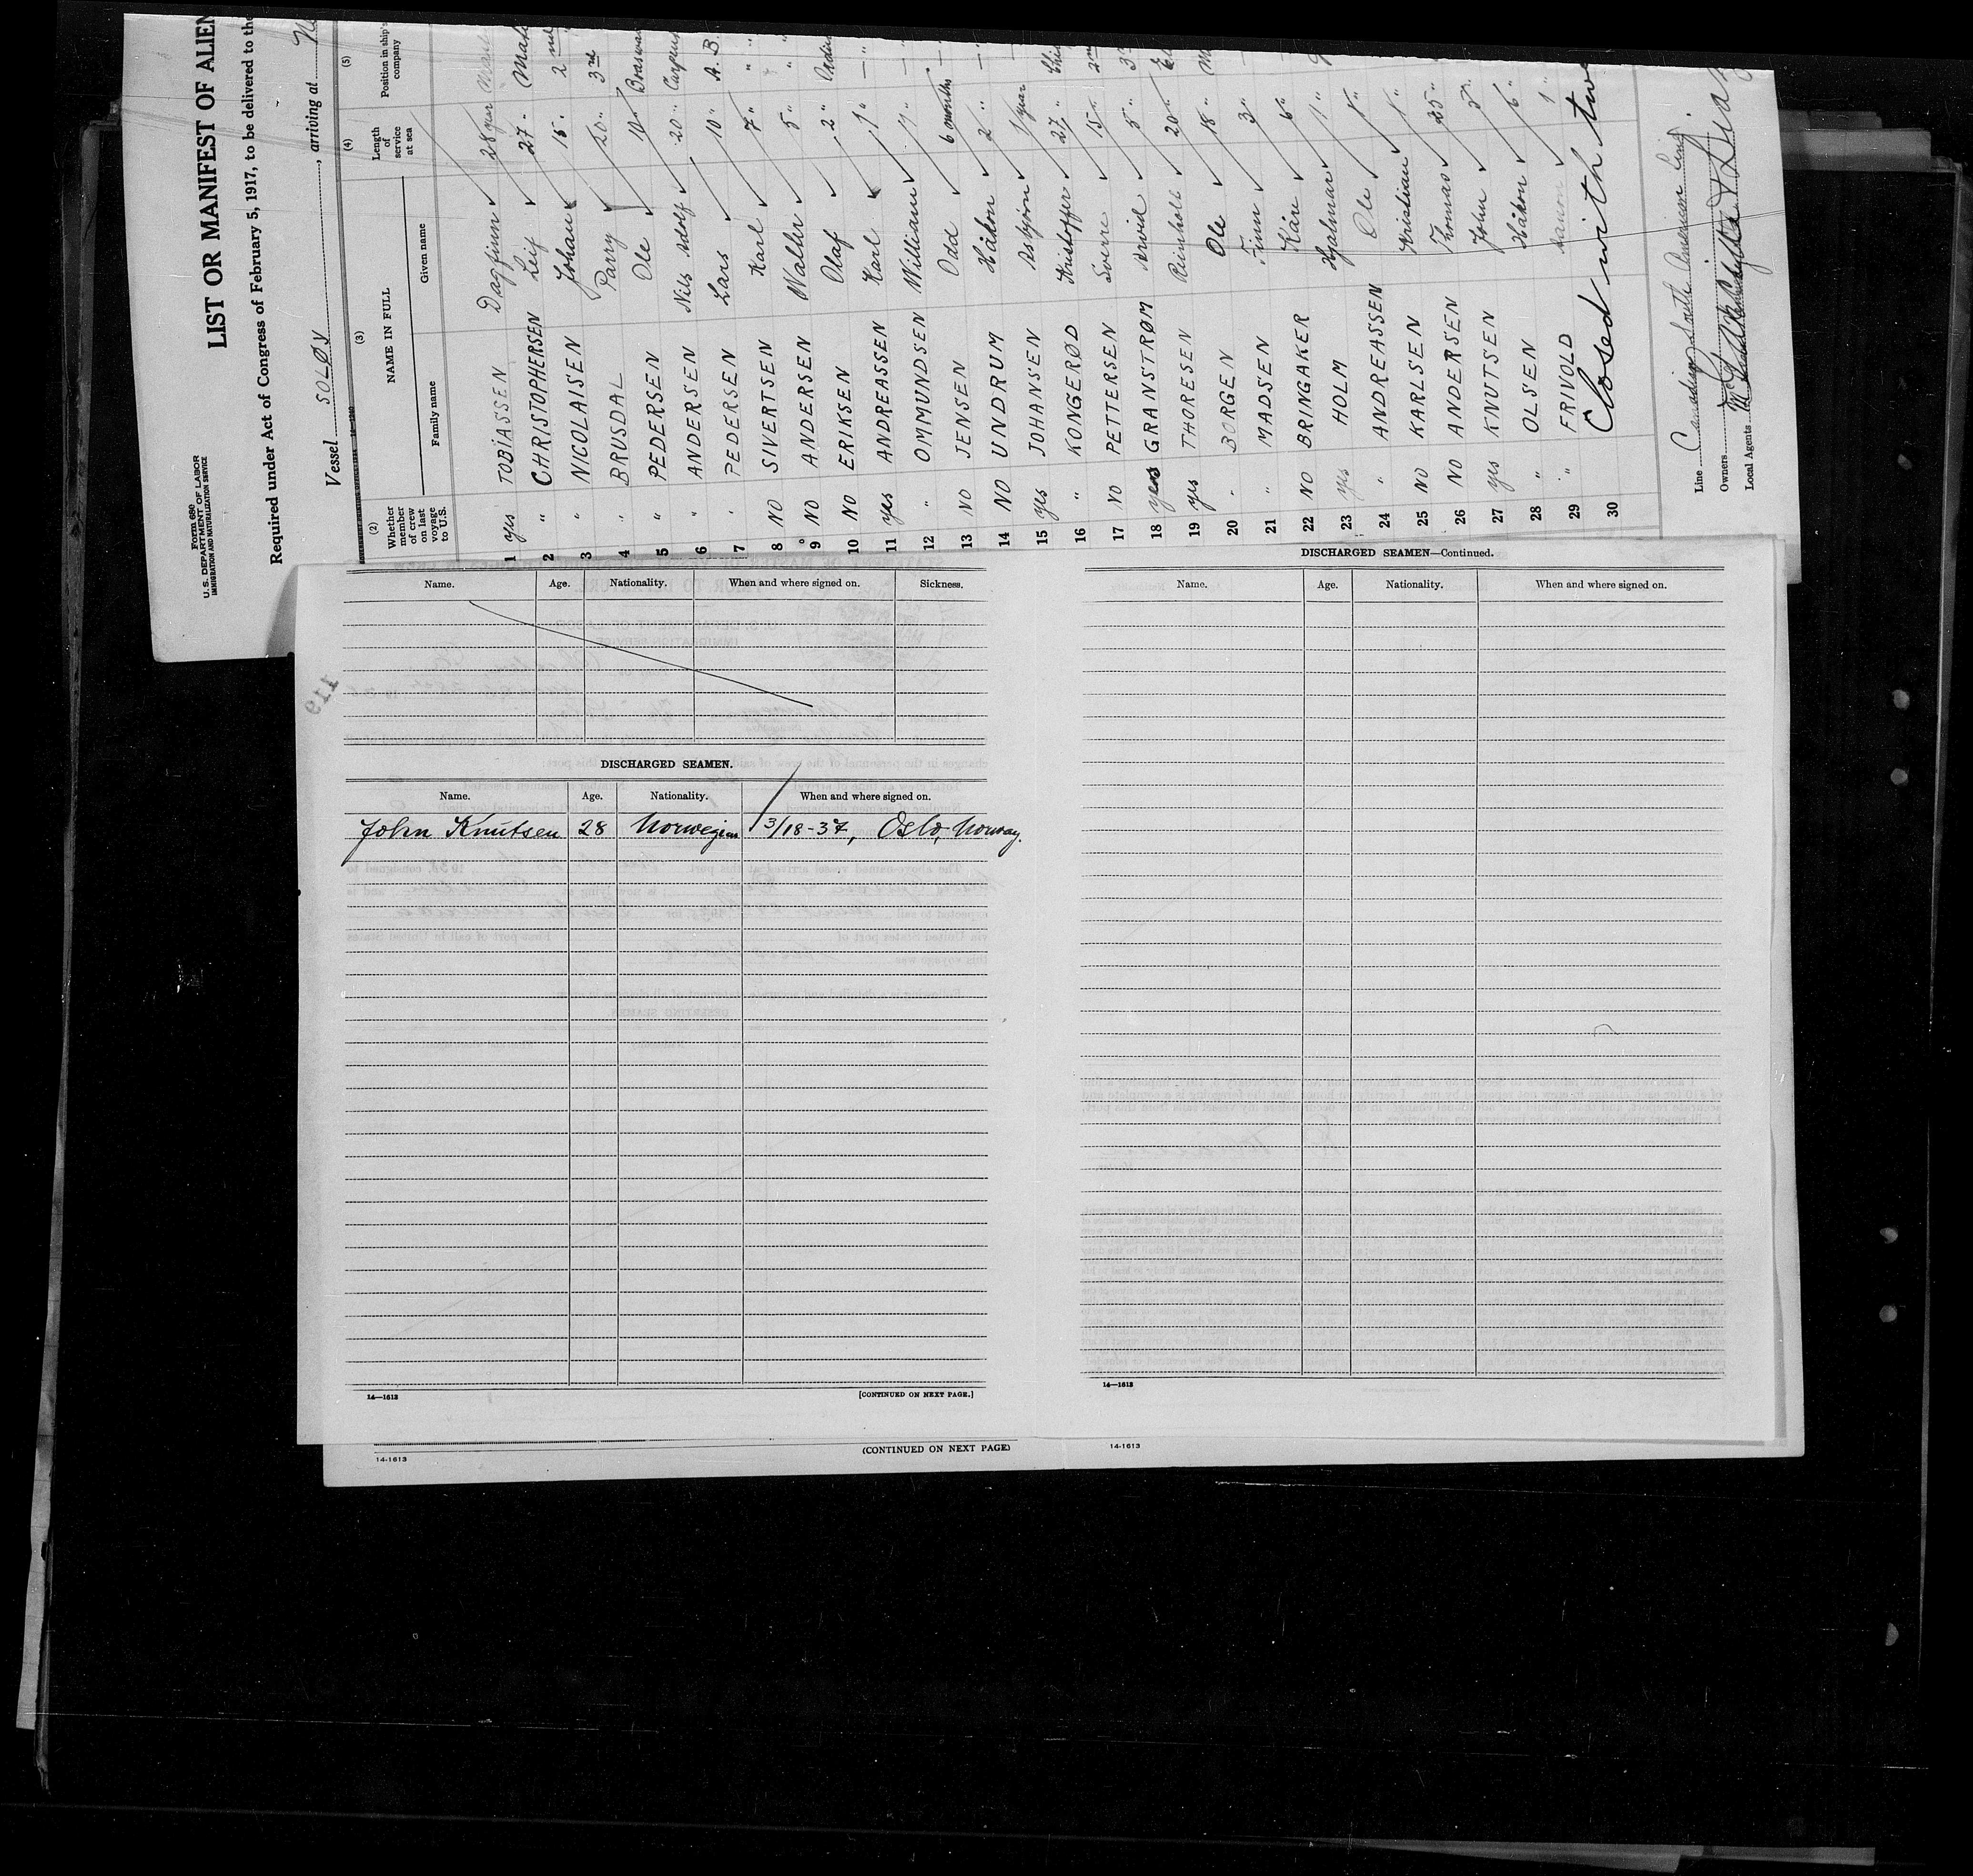 Form 680
U. S. DEPARTMENT OF LABOR
IMMIGRATION AND NATURALIZATION SERVICE
LIST OR MANIFEST OF ALIEN
Required under Act of Congress of February 5, 1917, to be delivered to the
Vessel SOLØY, arriving at
(2) (3) (4) (5)
Whether member of crew on last voyage to U.S. NAME IN FULL Length of service at sea Position in ship's company
Family name Given name
1 yes TOBIASSEN Dagfinn 28 year
2 " CHRISTOPHERSEN Leif 27 "
3 " NICOLAISEN Johan 15 " 2nd
4 " BRUSDAL Parry 20 " 3rd
5 " PEDERSEN Ole 10
6 " ANDERSEN Nils Adolf 20 "
7 " PEDERSEN Lars 10 " A. B.
8 NO SIVERTSEN Karl 7 " " "
9 NO ANDERSEN Walther 5 " "
10 NO ERIKSEN Olaf 2 "
11 yes ANDREASSEN Karl 1 "
12 " OMMUNDSEN William 1 "
13 NO JENSEN Odd 6 months
14 NO UNDRUM Håkon 2 "
15 yes JOHANSEN Asbjørn 1 year
16 " KONGERØD Kristoffer 27 "
17 NO PETTERSEN Sverre 15 "
18 yes GRANSTRØM Arvid 5 "
19 yes THORESEN Reinholt 20
20 " BORGEN Ole 18 "
21 " MADSEN Finn 3 "
22 NO BRINGAKER Kåre 6 "
23 yes HOLM Hjalmar 1 "
24 " ANDREASSEN Ole 1 "
25 NO KARLSEN Kristian 1 "
26 NO ANDERSEN Thomas 25 "
27 yes KNUTSEN John 5 "
28 " OLSEN Håkon 6 "
29 " FRIVOLD Håkon 1 "
30 Closed with twe
Line Canadian South American Line
Owners
Local Agents
Name. Age. Nationality. When and where signed on. Sickness.
119
DISCHARGED SEAMEN.
Name. Age. Nationality. When and where signed on.
John Knutsen 28 Norwegian 3/18-37, Oslo, Norway.
14—1613 [CONTINUED ON NEXT PAGE.]
(CONTINUED ON NEXT PAGE)
14-1613
DISCHARGED SEAMEN—Continued.
Name. Age. Nationality. When and where signed on.
14—1613
14-1613